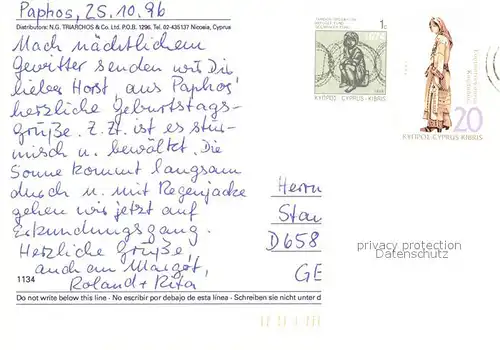 Paphos, 25.10.96
Distributors: N.G. TRIARCHOS & Co. Ltd. P.O.B. 1296, Tel. 02-435137 Nicosia, Cyprus
Nach nächtlichem
Gewitter senden wir Dir
lieber Horst, aus Paphos
herzliche Geburtstags-
grüße. Z.Zt. ist es stür-
misch u. bewölkt. Die
Sonne kommt langsam
durch u. mit Regenjacke
gehen wir jetzt auf
Erkundungsgang.
Herzliche Grüße,
auch an Margot,
Roland + Rita
1134
Do not write below this line - No escribir por debajo de esta línea - Schreiben sie nicht unter d
1c
ΚΥΠΡΟΣ CYPRUS-KIBRIS
20
ΚΥΠΡΟΣ CYPRUS KIBRIS
Herrn
Stau
D658
GE
privacy protection
Datenschutz